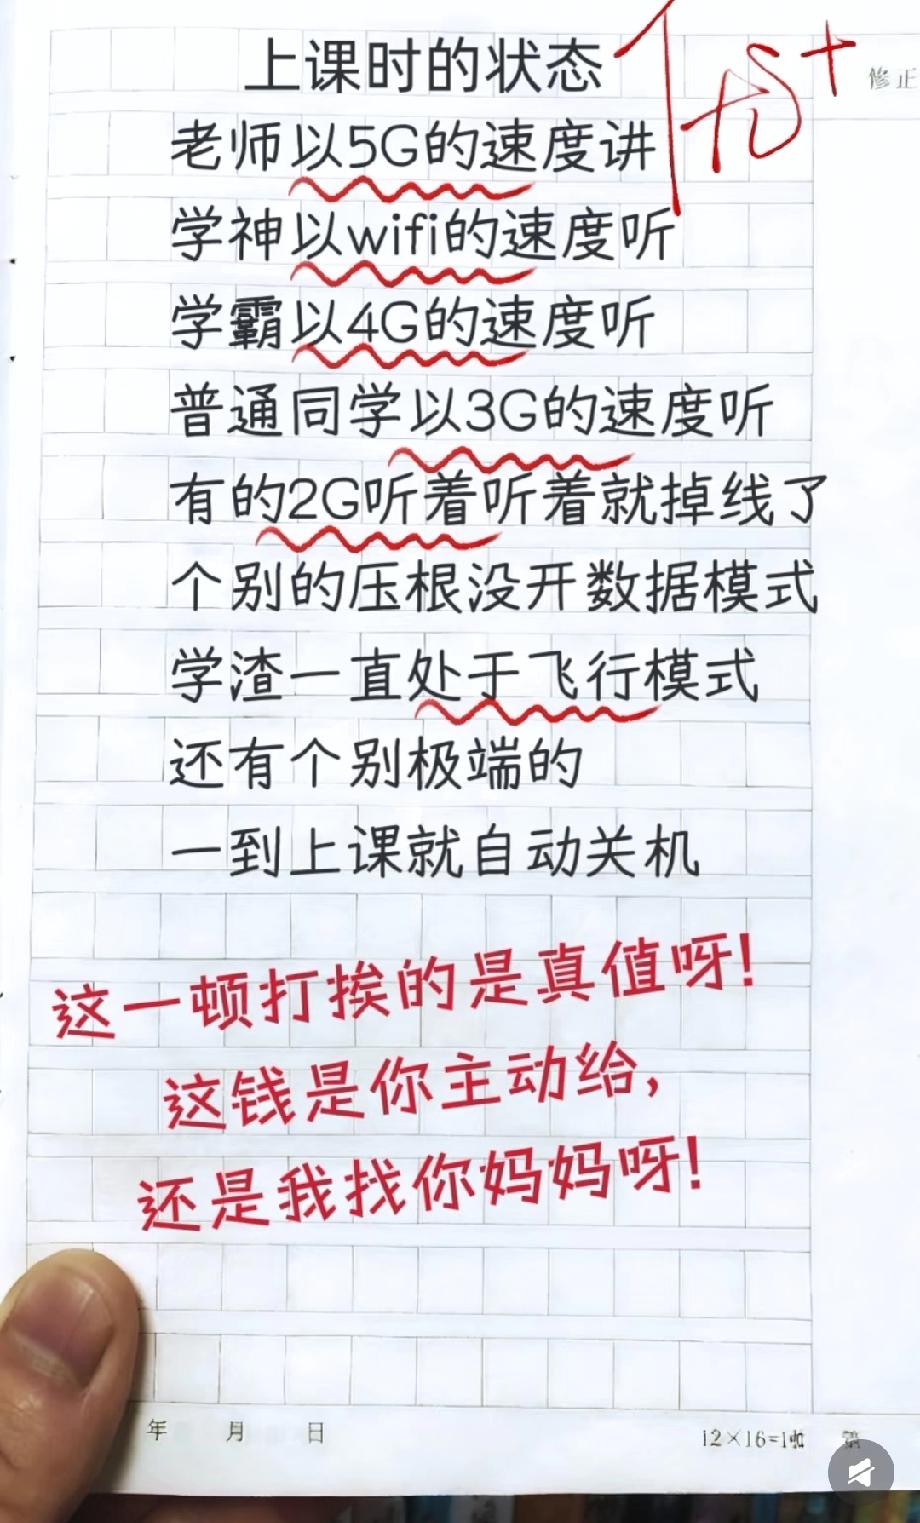 上课时的状态
优+
修正
老师以5G的速度讲
学神以wifi的速度听
学霸以4G的速度听
普通同学以3G的速度听
有的2G听着听着就掉线了
个别的压根没开数据模式
学渣一直处于飞行模式
还有个别极端的
一到上课就自动关机
这一顿打挨的是真值呀!
这钱是你主动给,
还是我找你妈妈呀!
年 月 日
12×16=1